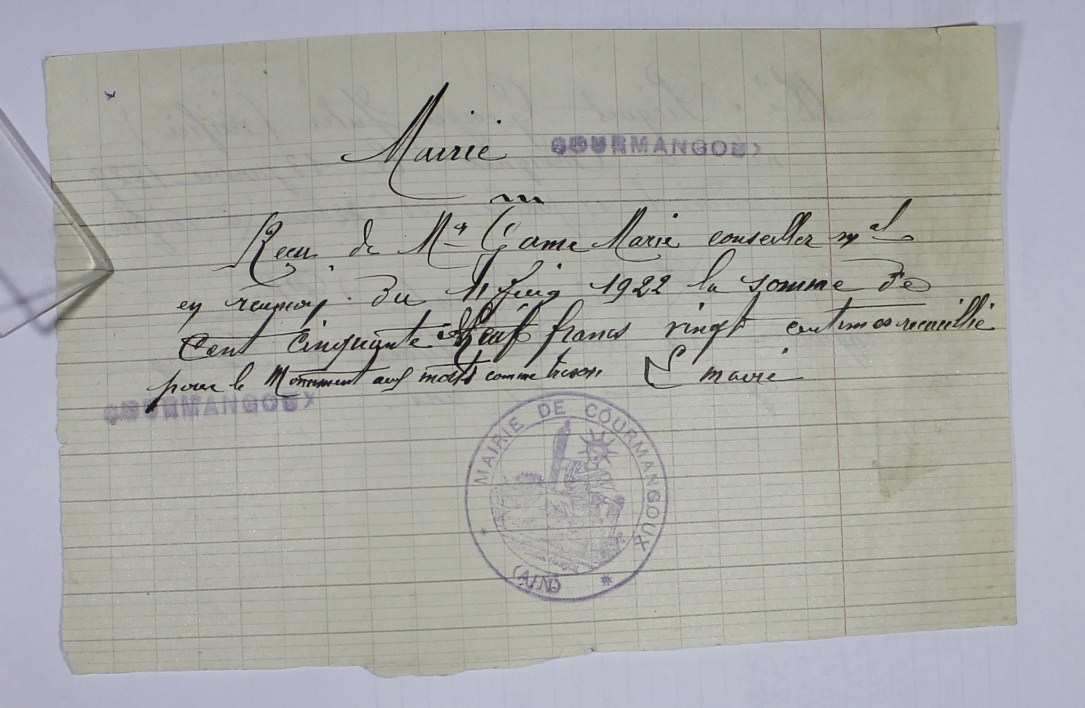 Mairie COURMANGOUX
Reçu de Mr Game Marie conseiller mal
en reunion du 11 juin 1922 la somme de
Cent cinquante Neuf francs vingt centimes recueillie
pour le Monument aux morts comme Le maire
COURMANGOUX
MAIRIE DE COURMANGOUX
(AIN)